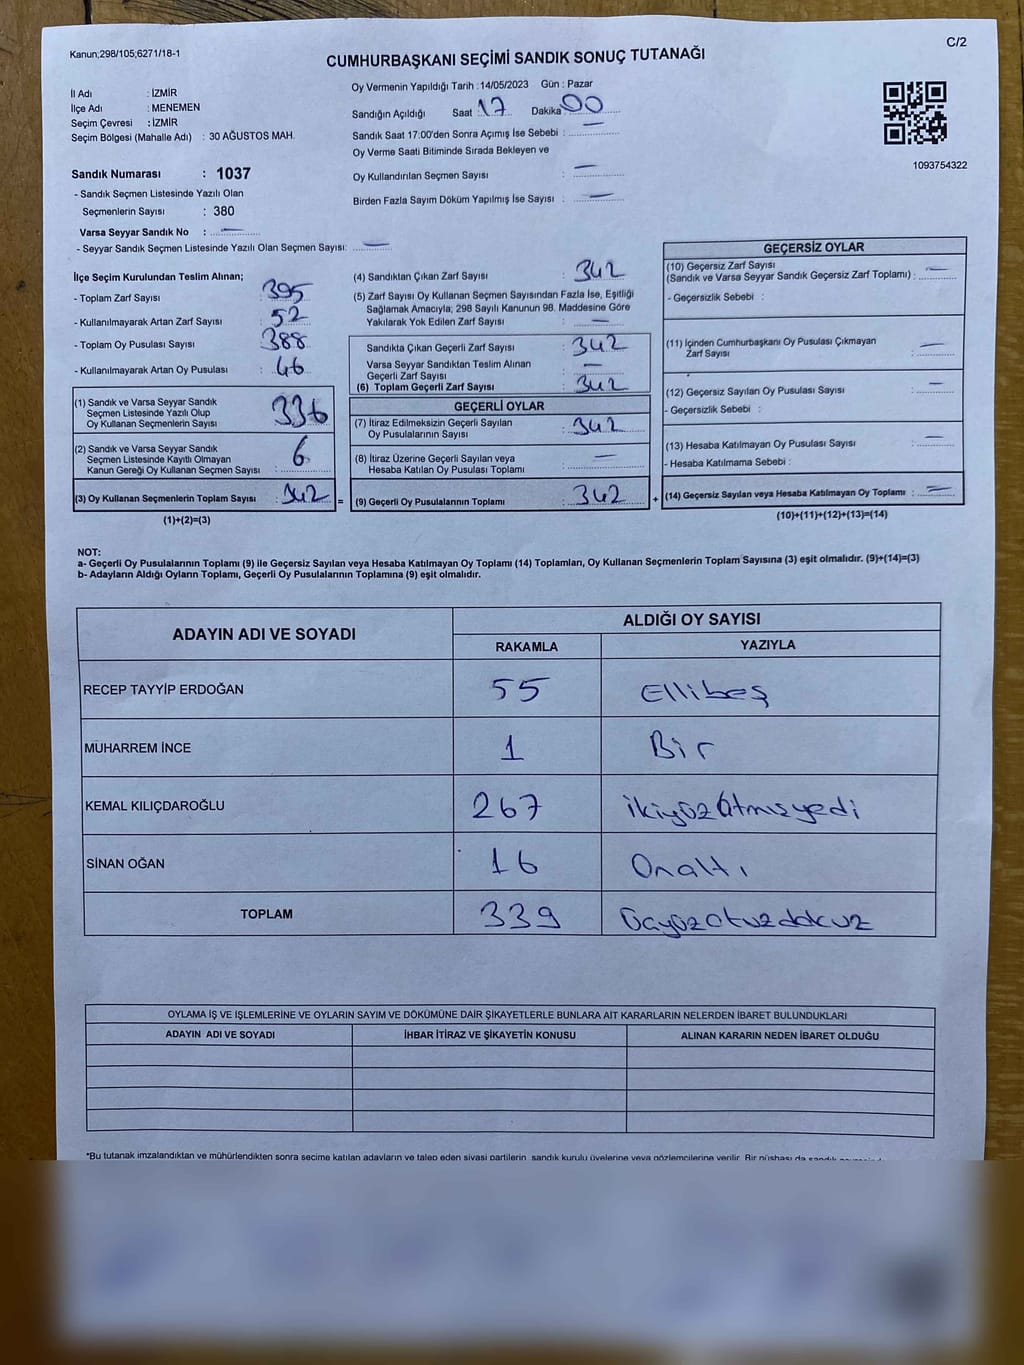 Kanun;298/105;6271/18-1
C/2
CUMHURBAŞKANI SEÇİMİ SANDIK SONUÇ TUTANAĞI
İl Adı : İZMİR
İlçe Adı : MENEMEN
Seçim Çevresi : İZMİR
Seçim Bölgesi (Mahalle Adı) : 30 AĞUSTOS MAH.
Sandık Numarası : 1037
- Sandık Seçmen Listesinde Yazılı Olan
Seçmenlerin Sayısı : 380
Varsa Seyyar Sandık No : —
- Seyyar Sandık Seçmen Listesinde Yazılı Olan Seçmen Sayısı: —
Oy Vermenin Yapıldığı Tarih :14/05/2023 Gün : Pazar
Sandığın Açıldığı Saat 17 Dakika 00
Sandık Saat 17:00'den Sonra Açımış İse Sebebi : —
Oy Verme Saati Bitiminde Sırada Bekleyen ve
Oy Kullandırılan Seçmen Sayısı : —
Birden Fazla Sayım Döküm Yapılmış İse Sayısı : —
1093754322
İlçe Seçim Kurulundan Teslim Alınan;
- Toplam Zarf Sayısı : 395
- Kullanılmayarak Artan Zarf Sayısı : 52
- Toplam Oy Pusulası Sayısı : 388
- Kullanılmayarak Artan Oy Pusulası : 46
(1) Sandık ve Varsa Seyyar Sandık
Seçmen Listesinde Yazılı Olup
Oy Kullanan Seçmenlerin Sayısı : 336
(2) Sandık ve Varsa Seyyar Sandık
Seçmen Listesinde Kayıtlı Olmayan
Kanun Gereği Oy Kullanan Seçmen Sayısı : 6
(3) Oy Kullanan Seçmenlerin Toplam Sayısı : 342 =
(1)+(2)=(3)
(4) Sandıktan Çıkan Zarf Sayısı : 342
(5) Zarf Sayısı Oy Kullanan Seçmen Sayısından Fazla İse, Eşitliği
Sağlamak Amacıyla; 298 Sayılı Kanunun 98. Maddesine Göre
Yakılarak Yok Edilen Zarf Sayısı : —
Sandıkta Çıkan Geçerli Zarf Sayısı : 342
Varsa Seyyar Sandıktan Teslim Alınan
Geçerli Zarf Sayısı : —
(6) Toplam Geçerli Zarf Sayısı : 342
GEÇERLİ OYLAR
(7) İtiraz Edilmeksizin Geçerli Sayılan
Oy Pusulalarının Sayısı : 342
(8) İtiraz Üzerine Geçerli Sayılan veya
Hesaba Katılan Oy Pusulası Toplamı : —
(9) Geçerli Oy Pusulalarının Toplamı : 342 +
GEÇERSİZ OYLAR
(10) Geçersiz Zarf Sayısı
(Sandık ve Varsa Seyyar Sandık Geçersiz Zarf Toplamı) : —
- Geçersizlik Sebebi :
(11) İçinden Cumhurbaşkanı Oy Pusulası Çıkmayan
Zarf Sayısı : —
(12) Geçersiz Sayılan Oy Pusulası Sayısı : —
- Geçersizlik Sebebi :
(13) Hesaba Katılmayan Oy Pusulası Sayısı : —
- Hesaba Katılmama Sebebi :
(14) Geçersiz Sayılan veya Hesaba Katılmayan Oy Toplamı : —
(10)+(11)+(12)+(13)=(14)
NOT:
a- Geçerli Oy Pusulalarının Toplamı (9) ile Geçersiz Sayılan veya Hesaba Katılmayan Oy Toplamı (14) Toplamları, Oy Kullanan Seçmenlerin Toplam Sayısına (3) eşit olmalıdır. (9)+(14)=(3)
b- Adayların Aldığı Oyların Toplamı, Geçerli Oy Pusulalarının Toplamına (9) eşit olmalıdır.
ADAYIN ADI VE SOYADI
ALDIĞI OY SAYISI
RAKAMLA YAZIYLA
RECEP TAYYİP ERDOĞAN 55 Ellibeş
MUHARREM İNCE 1 Bir
KEMAL KILIÇDAROĞLU 267 ikiyüzAtmışyedi
SİNAN OĞAN 16 Onaltı
TOPLAM 339 Üçyüzotuzdokuz
OYLAMA İŞ VE İŞLEMLERİNE VE OYLARIN SAYIM VE DÖKÜMÜNE DAİR ŞİKAYETLERLE BUNLARA AİT KARARLARIN NELERDEN İBARET BULUNDUKLARI
ADAYIN ADI VE SOYADI İHBAR İTİRAZ VE ŞİKAYETİN KONUSU ALINAN KARARIN NEDEN İBARET OLDUĞU
*Bu tutanak imzalandıktan ve mühürlendikten sonra seçime katılan adayların ve talep eden siyasi partilerin, sandık kurulu üyelerine veya gözlemcilerine verilir. Bir nüshası da sandık